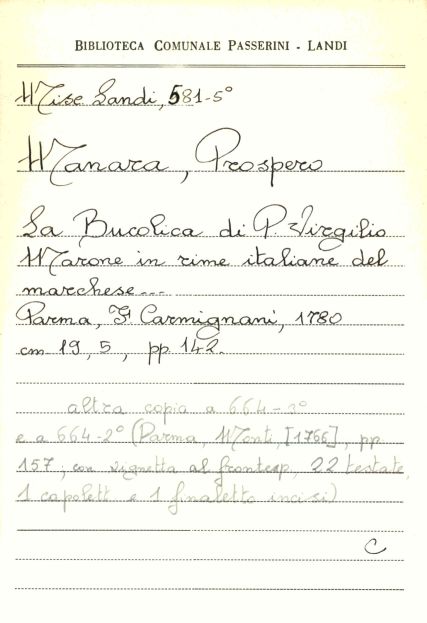 BIBLIOTECA COMUNALE PASSERINI - LANDI
Misc Landi, 581-5°
Manara, Prospero
La Bucolica di P. Virgilio
Marone in rime italiane del
marchese...
Parma, F Carmignani, 1780
cm 19,5, pp 142.
altra copia a 664-3°
e a 664-2° (Parma, Monti, [1766], pp.
157, con vignetta al frontesp, 22 testate,
1 capolett e 1 finaletto incisi)
C